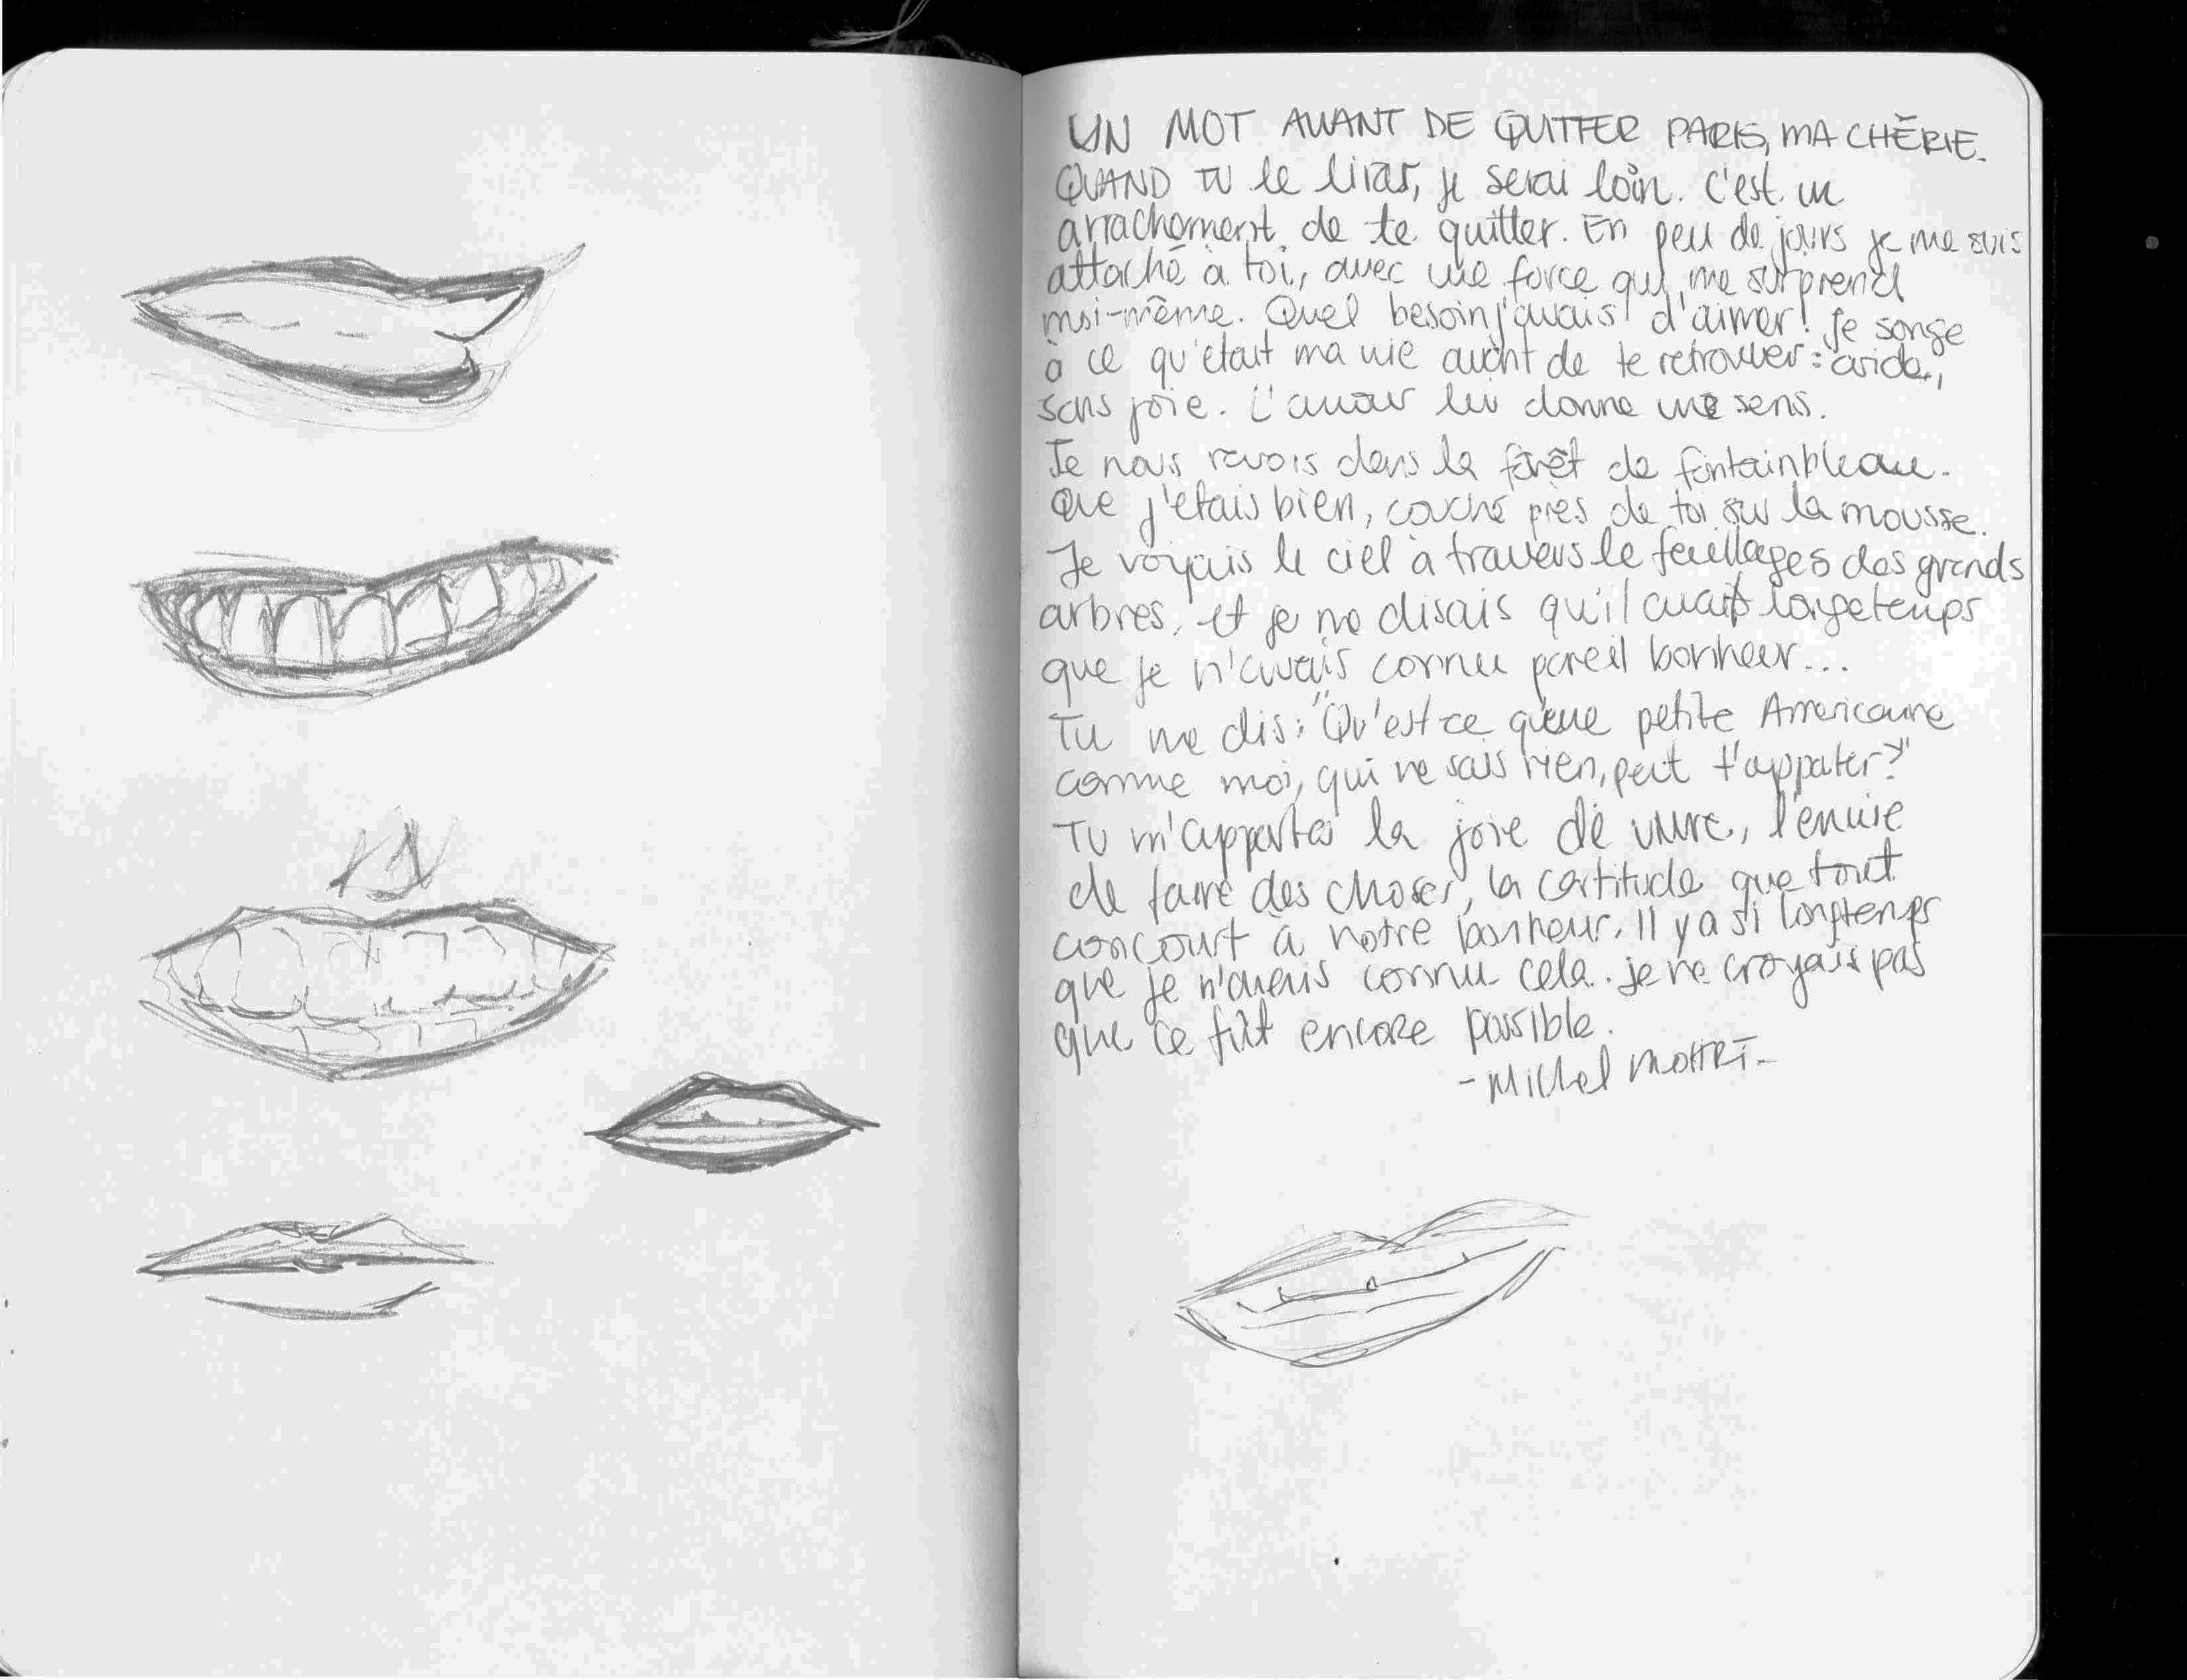 UN MOT AVANT DE QUITTER PARIS, MA CHÉRIE.
QUAND TU le liras, je serai loin. C'est un
arrachement de te quitter. En peu de jours je me suis
attaché à toi, avec une force qui me surprend
moi-même. Quel besoin j'avais d'aimer! Je songe
à ce qu'était ma vie avant de te retrouver: aride,
sans joie. L'amour lui donne une sens.
Je nous revois dans la forêt de fontainbleau.
Que j'etais bien, couché près de toi sur la mousse.
Je voyais le ciel à travers le feuillages des grands
arbres, et je me disais qu'il avait longetemps
que je n'avais connu pareil bonheur...
Tu me dis: "Qu'est-ce qu'une petite Americaine
comme moi, qui ne sais rien, peut t'appater?"
Tu m'apportes la joie de vivre, l'envie
de faire des choses, la certitude que tout
concourt à notre bonheur. Il y a si longtemps
que je n'avais connu cela. je ne croyais pas
que ce fût encore possible.
- Michel MOHRT -